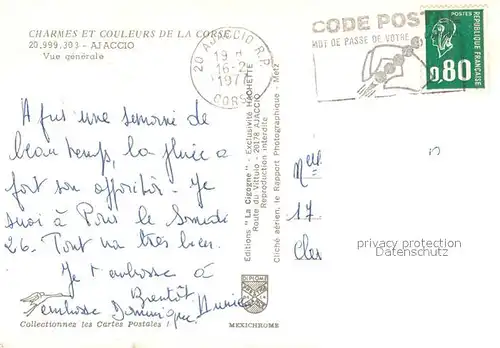 CHARMES ET COULEURS DE LA CORSE
20.999.303 - AJACCIO
Vue générale
A fuis une semaine de
beau temps, la pluie a
fait son apparition - Je
suis à Paris le Samedi
26. Tout va très bien.
Je t'embrasse à
Bientôt
embrasse Dominique
Collectionnez les Cartes Postales !
MEXICHROME
DIPLOME
Editions "La Cigogne" - Exclusivité HACHETTE
Route du Vittulo - 20178 AJACCIO
Reproduction interdite
Cliché aérien, le Rapport Photographique - Metz
20 AJACCIO R.P.
19 H
16-2
197
CORSE
CODE POST
MOT DE PASSE DE VOTRE
POSTES
0,80
REPUBLIQUE FRANÇAISE
Melle
17
privacy protection
Datenschutz